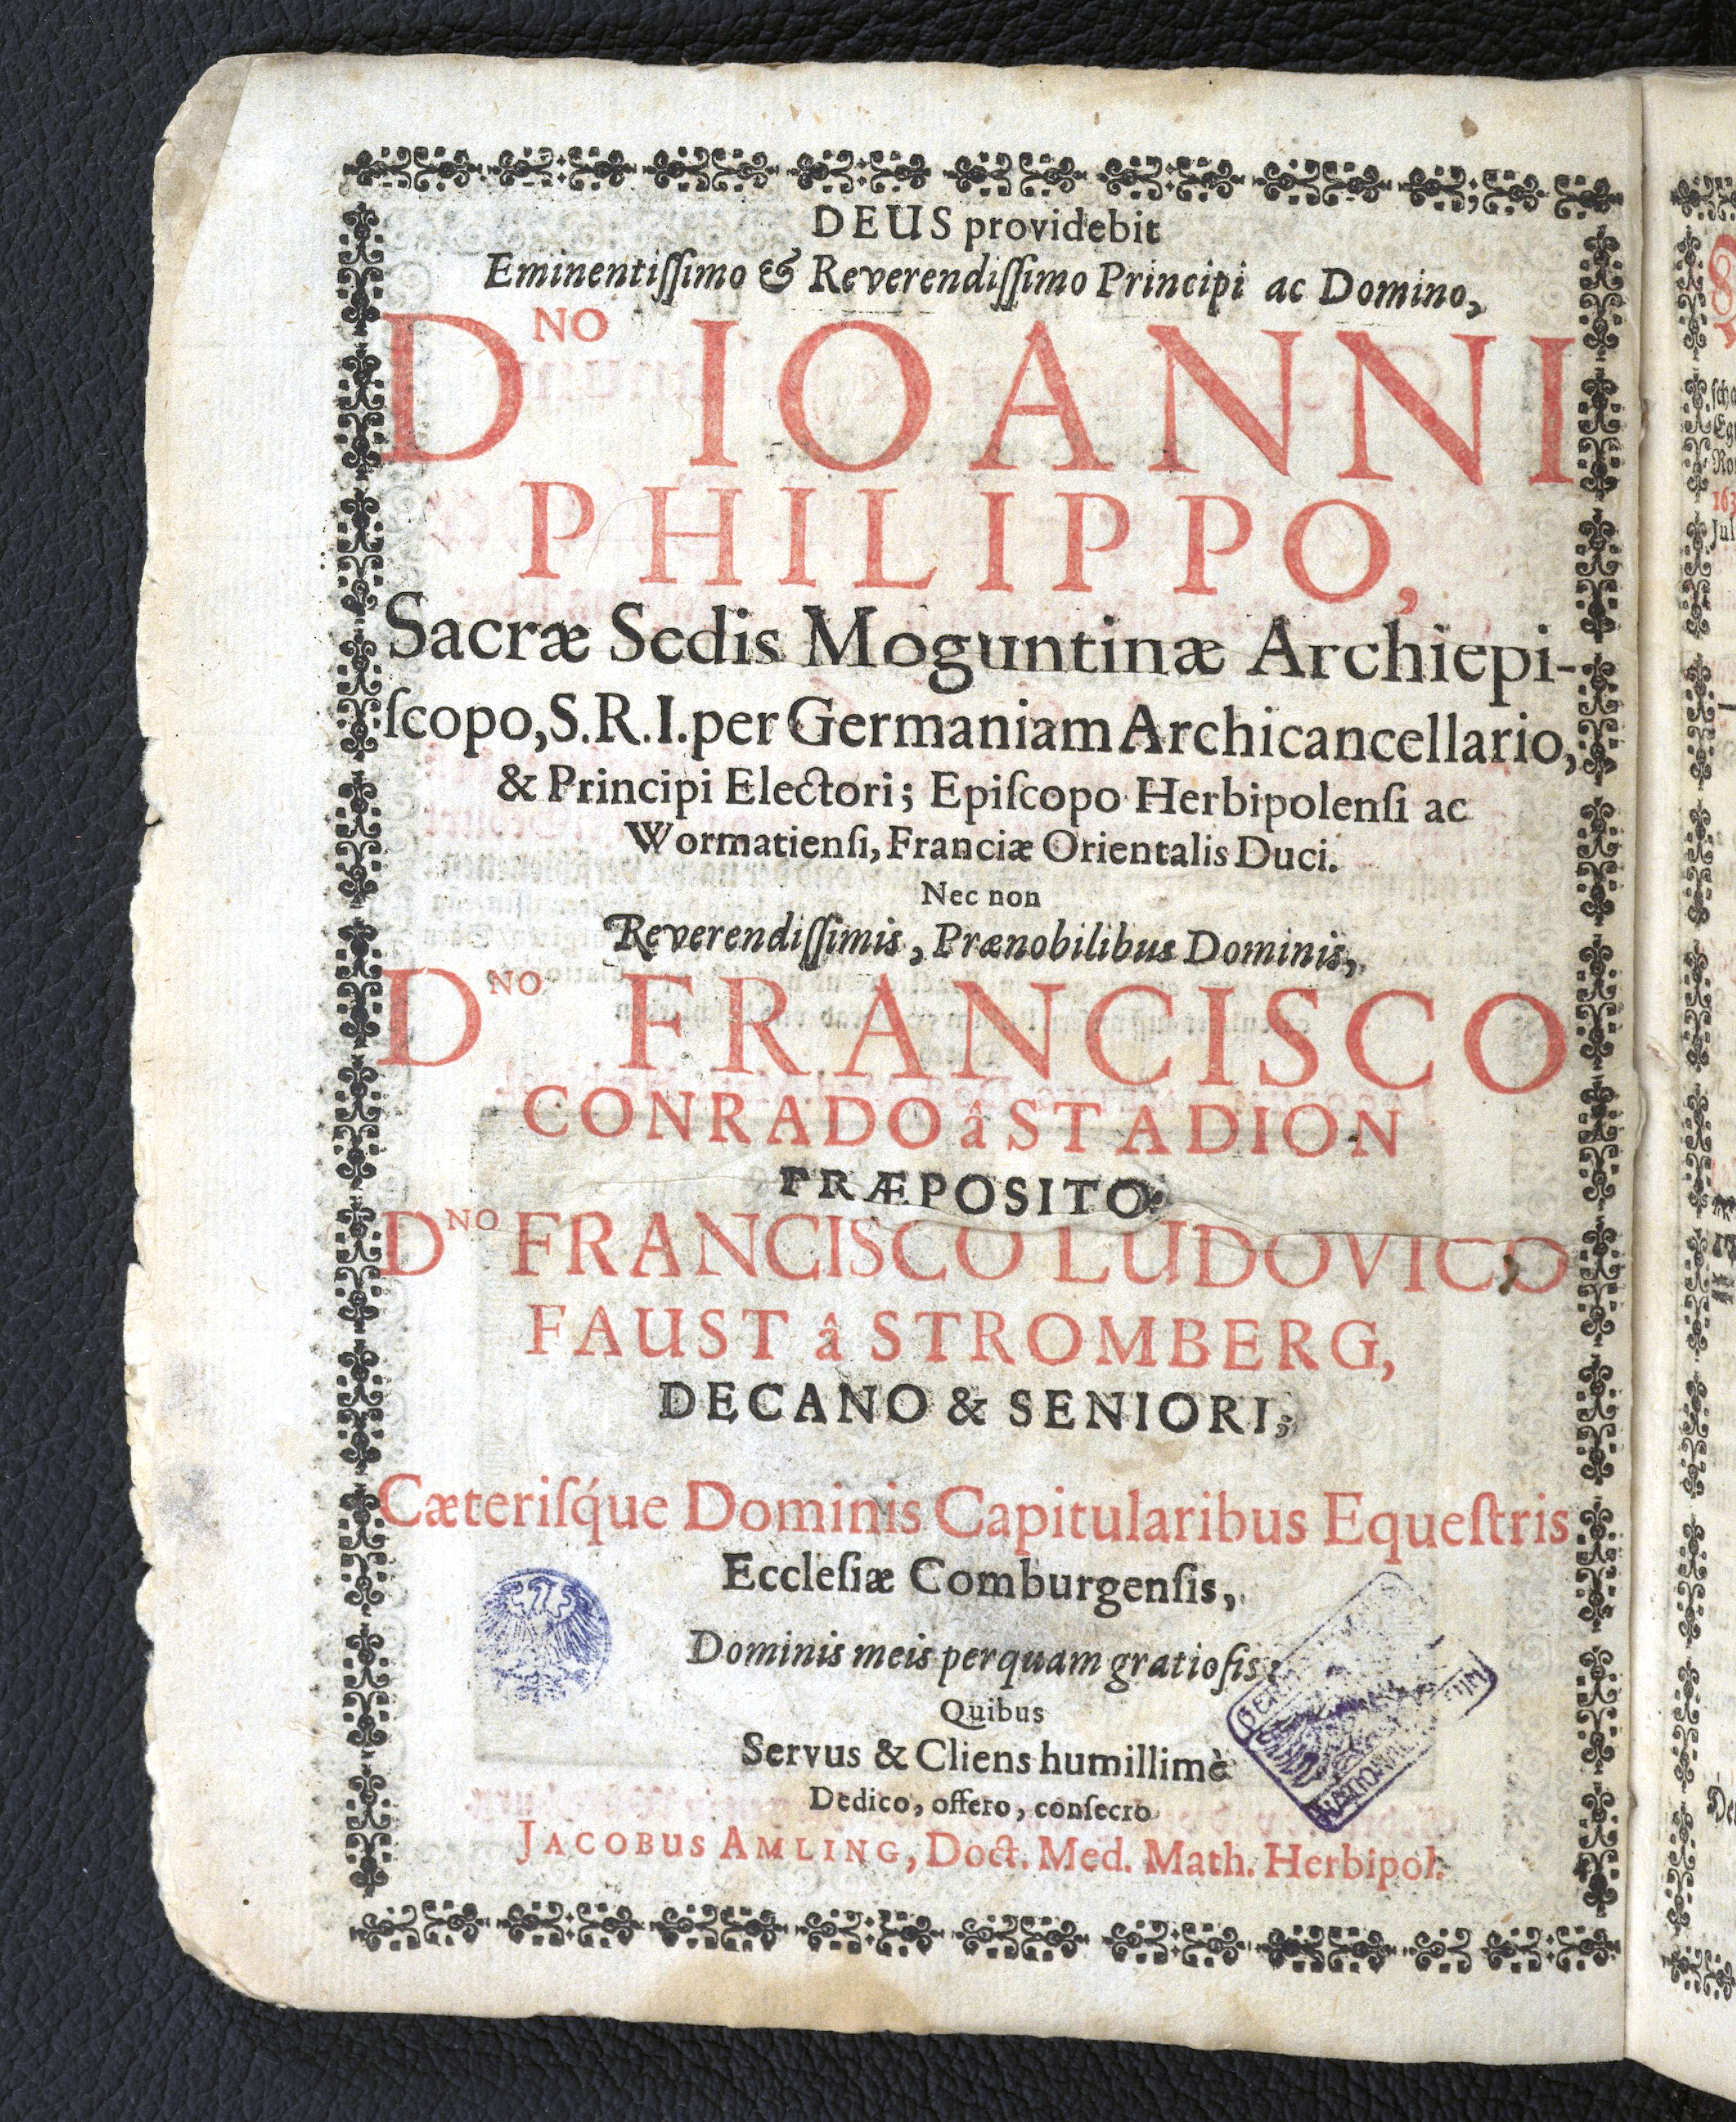 DEUS providebit
Eminentiſſimo & Reverendiſſimo Principi ac Domino,
D.NO IOANNI
PHILIPPO,
Sacræ Sedis Moguntinæ Archiepi-
ſcopo, S.R.I. per Germaniam Archicancellario,
& Principi Electori; Epiſcopo Herbipolenſi ac
Wormatienſi, Franciæ Orientalis Duci.
Nec non
Reverendiſſimis, Prænobilibus Dominis,
DNO FRANCISCO
CONRADO â STADION
PRÆPOSITO.
DNO FRANCISCO LUDOVICO
FAUST â STROMBERG,
DECANO & SENIORI;
Cæteriſq́ue Dominis Capitularibus Equeſtris
Eccleſiæ Comburgenſis,
Dominis meis perquam gratioſis:
Quibus
Servus & Cliens humillimè
Dedico, offero, conſecro
JACOBUS AMLING, Doct. Med. Math. Herbipol.
NATIONAL